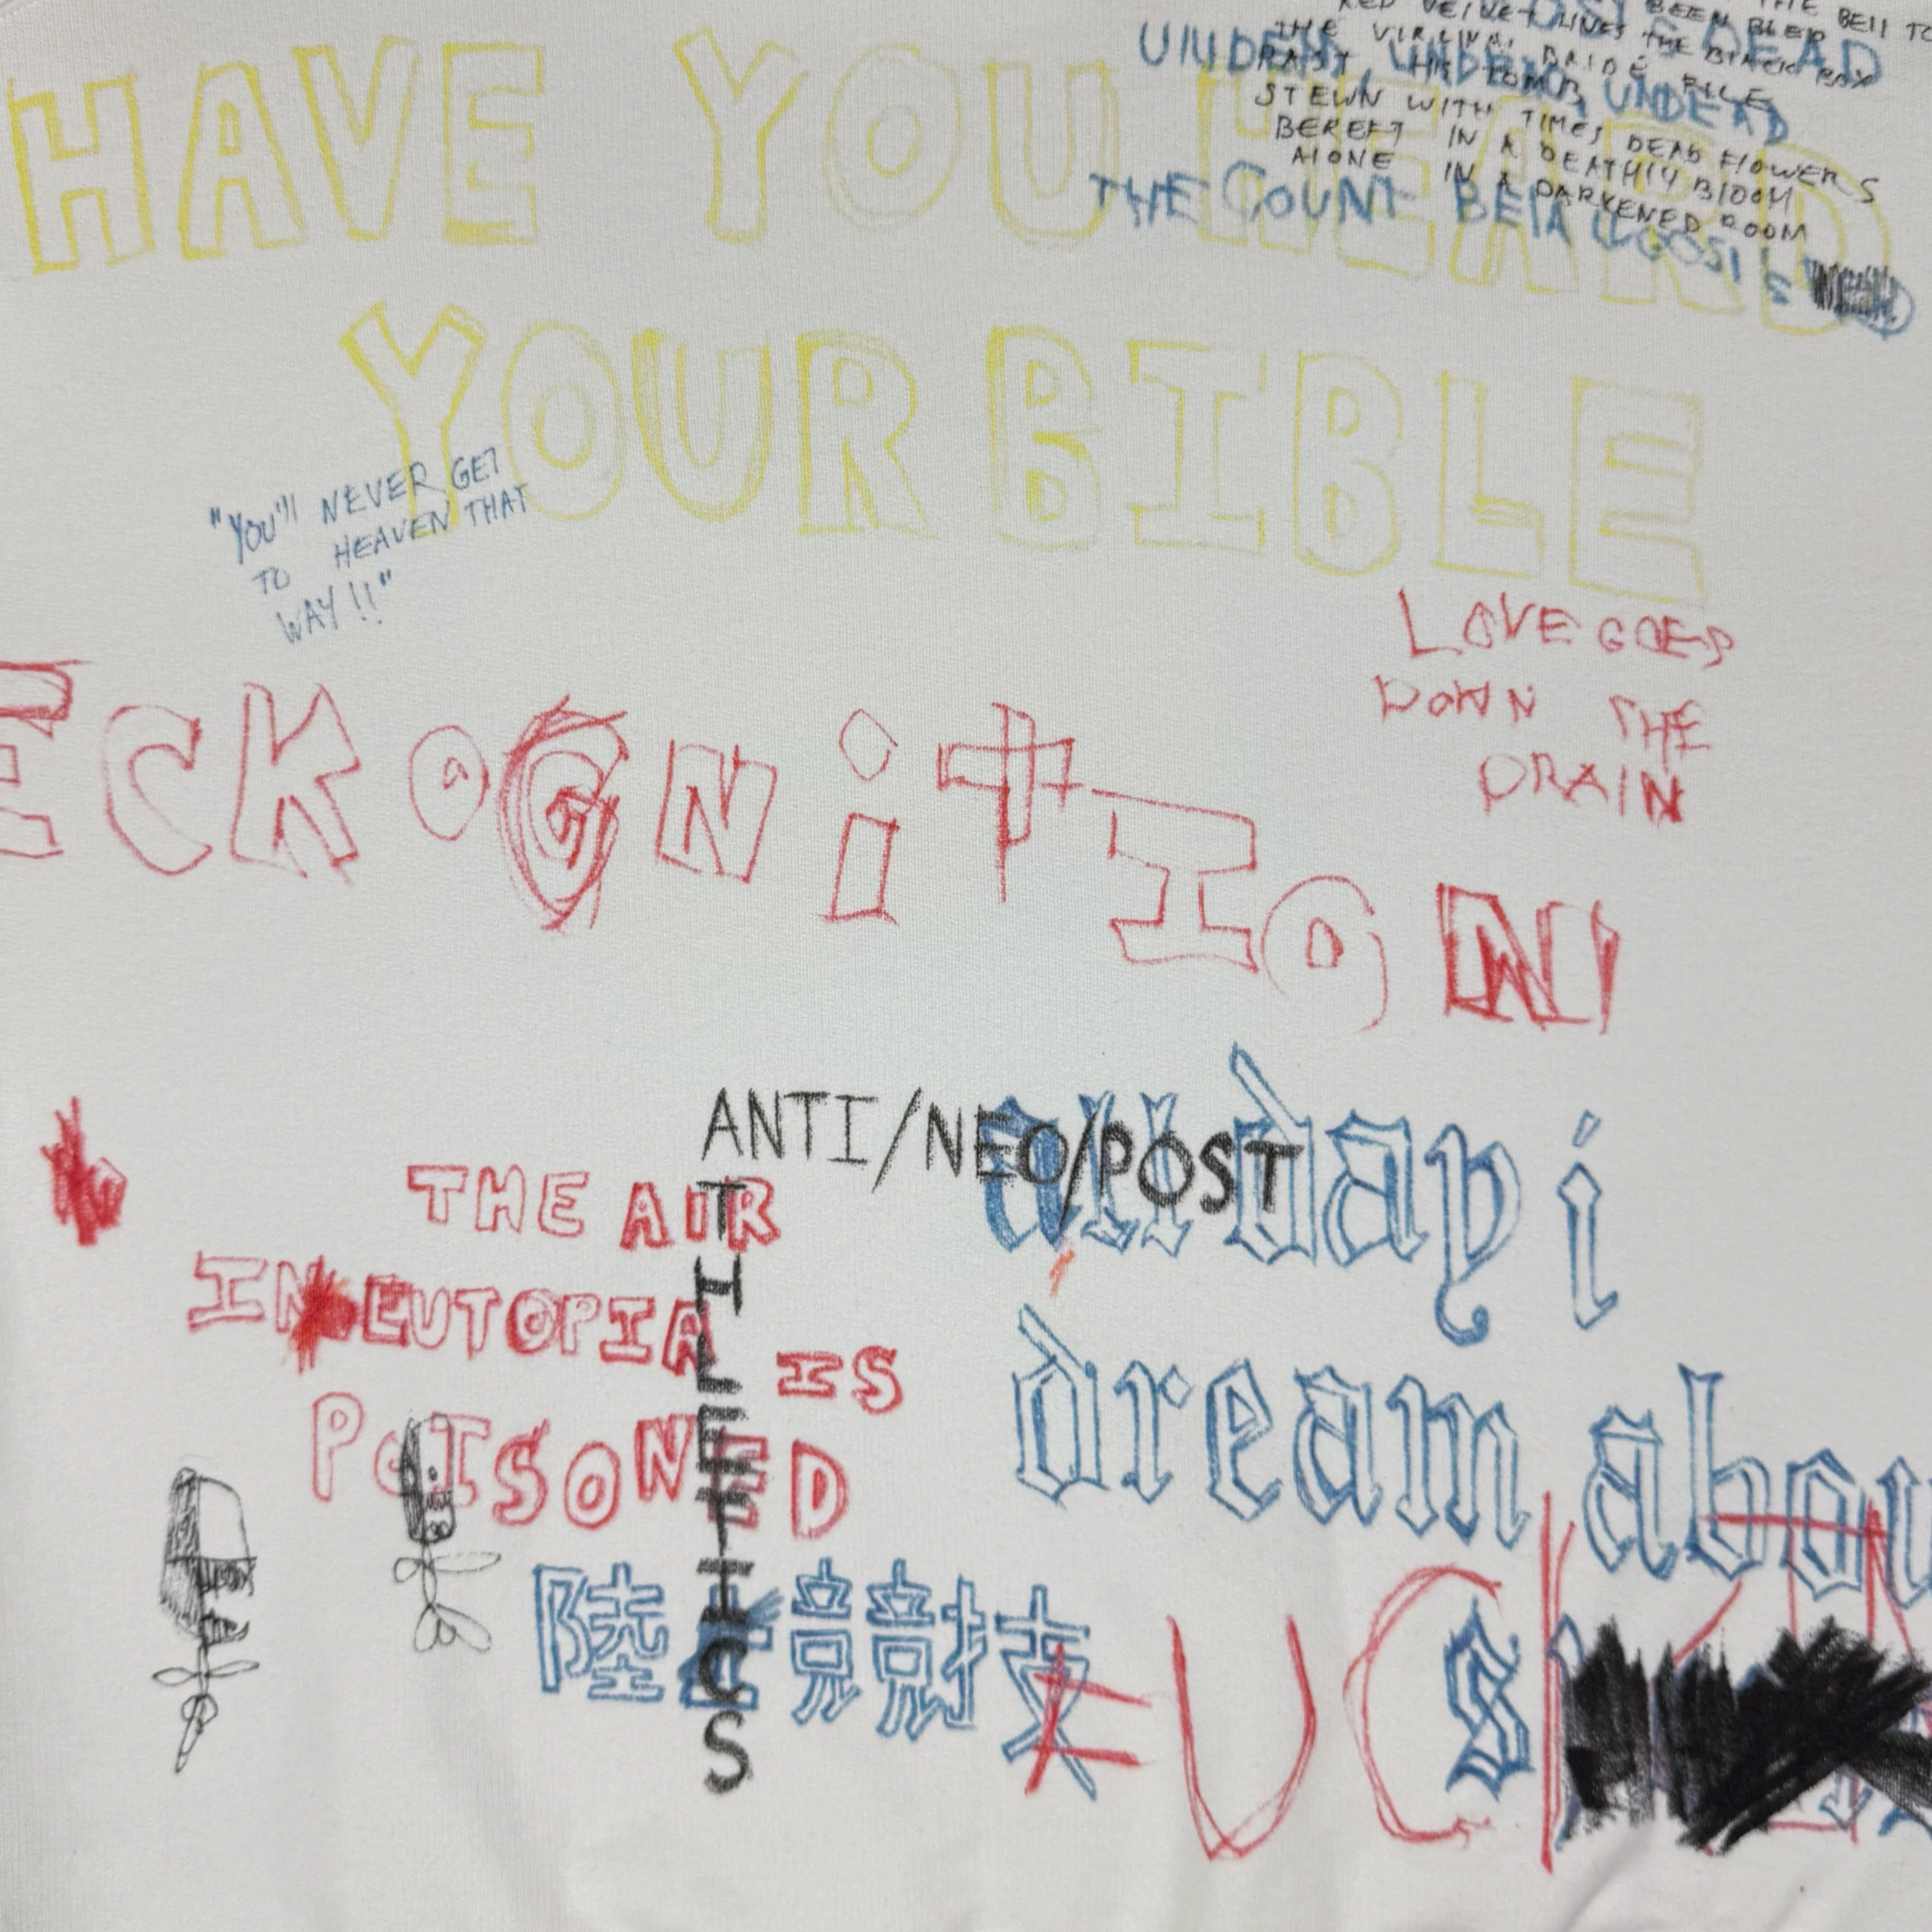 HAVE YOU HEARD
YOUR BIBLE
THE BEll TO
RED VELVET LINES THE BlACK BOX
BEEN BLED
THE VIRGINAl BRIDE FILE
PAST HIS TOMB
STEWN WITH TIMES DEAD FlOWERS
BEREFT IN A DEATHlY BlOOM
AlONE IN A DARKENED ROOM
DEAD
UNDEAD, UNDEAD, UNDEAD
THE COUNT
BElA lUGOSI'S
"YOU'll NEVER GET
TO HEAVEN THAT
WAY!!"
LOVE GOES
DOWN THE
DRAIN
ECKOGNiTION
ANTI/NEO/POST
ATHLETICS
THE AIR
IN EUTOPIA IS
POISONED
all day i
dream abou
陸上競技
FUCK